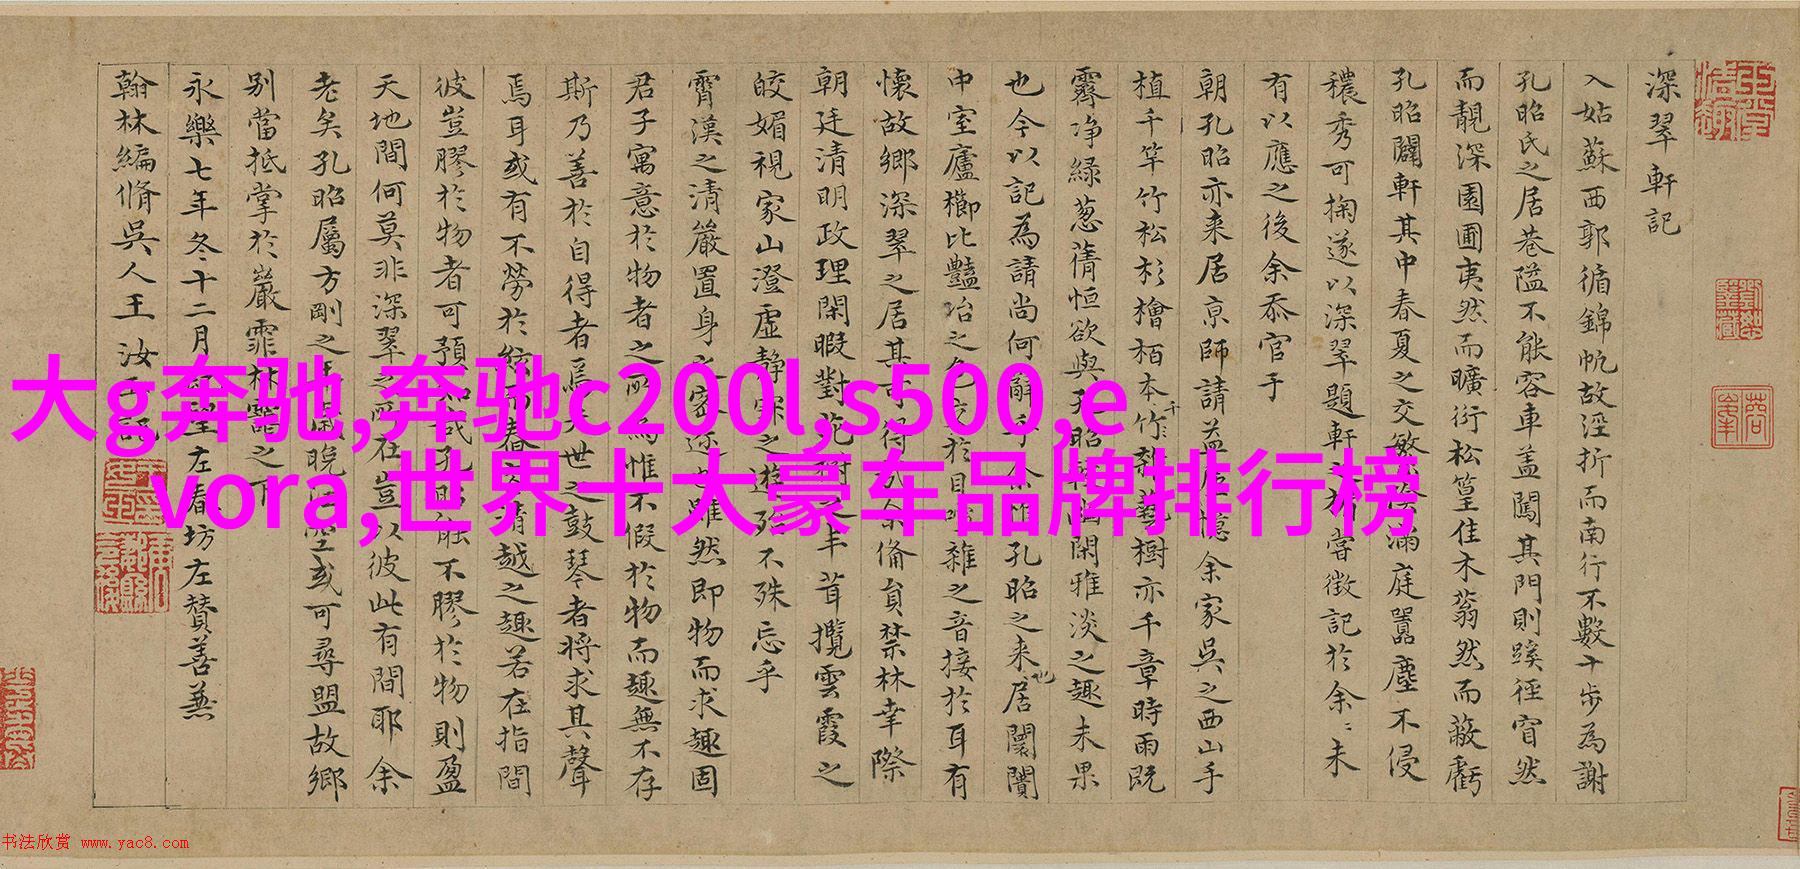 大g奔驰,奔驰c200l,s500,e
vora,世界十大豪车品牌排行榜
深翠軒記
入姑蘇西郭循錦帆故涇折而南行不數十步為謝
孔昭氏之居巷隘不能容車盖闖其門則蹊徑窅然
而靚深園圃夷然而曠衍松篁佳木蓊然而蔽虧
孔昭闢軒其中春夏之交滿庭囂塵不侵
穠秀可掬遂以深翠題軒嘗徵記於余〻未
有以應之後余忝官于
朝孔昭亦来居京師請益憶余家吳之西山手
植千竿竹松杉檜栢本竹樹亦千章時雨既
霽净綠葱蒨恒欲與孔昭幽閑雅淡之趣未果
也今以記為請尚何辭乎孔昭之来居闤闠
中室廬櫛比豔冶之色於目雜之音接於耳有
懷故鄉深翠之居其可得余備員禁林幸際
朝廷清明政理閑暇對花茸攬雲霞之
皎媚視家山澄虛静之趣殆不殊忘乎
霄漢之清嚴置身雖然即物而求趣固
君子寓意於物者之所為惟不假於物而趣無不存
斯乃善於自得者焉世之鼓琴者将求其聲
焉耳或有不勞於絃而越之趣若在指間
彼豈膠於物者可預知哉孔昭能不膠於物則盈
天地間何莫非深翠之所在豈以彼此有間耶余
老矣孔昭屬方剛之或可尋盟故鄉
别當抵掌於巖霏林靄之下
永樂七年冬十二月左春坊左贊善兼
翰林編脩吳人王汝玉記
书法欣赏 www.yac8.com